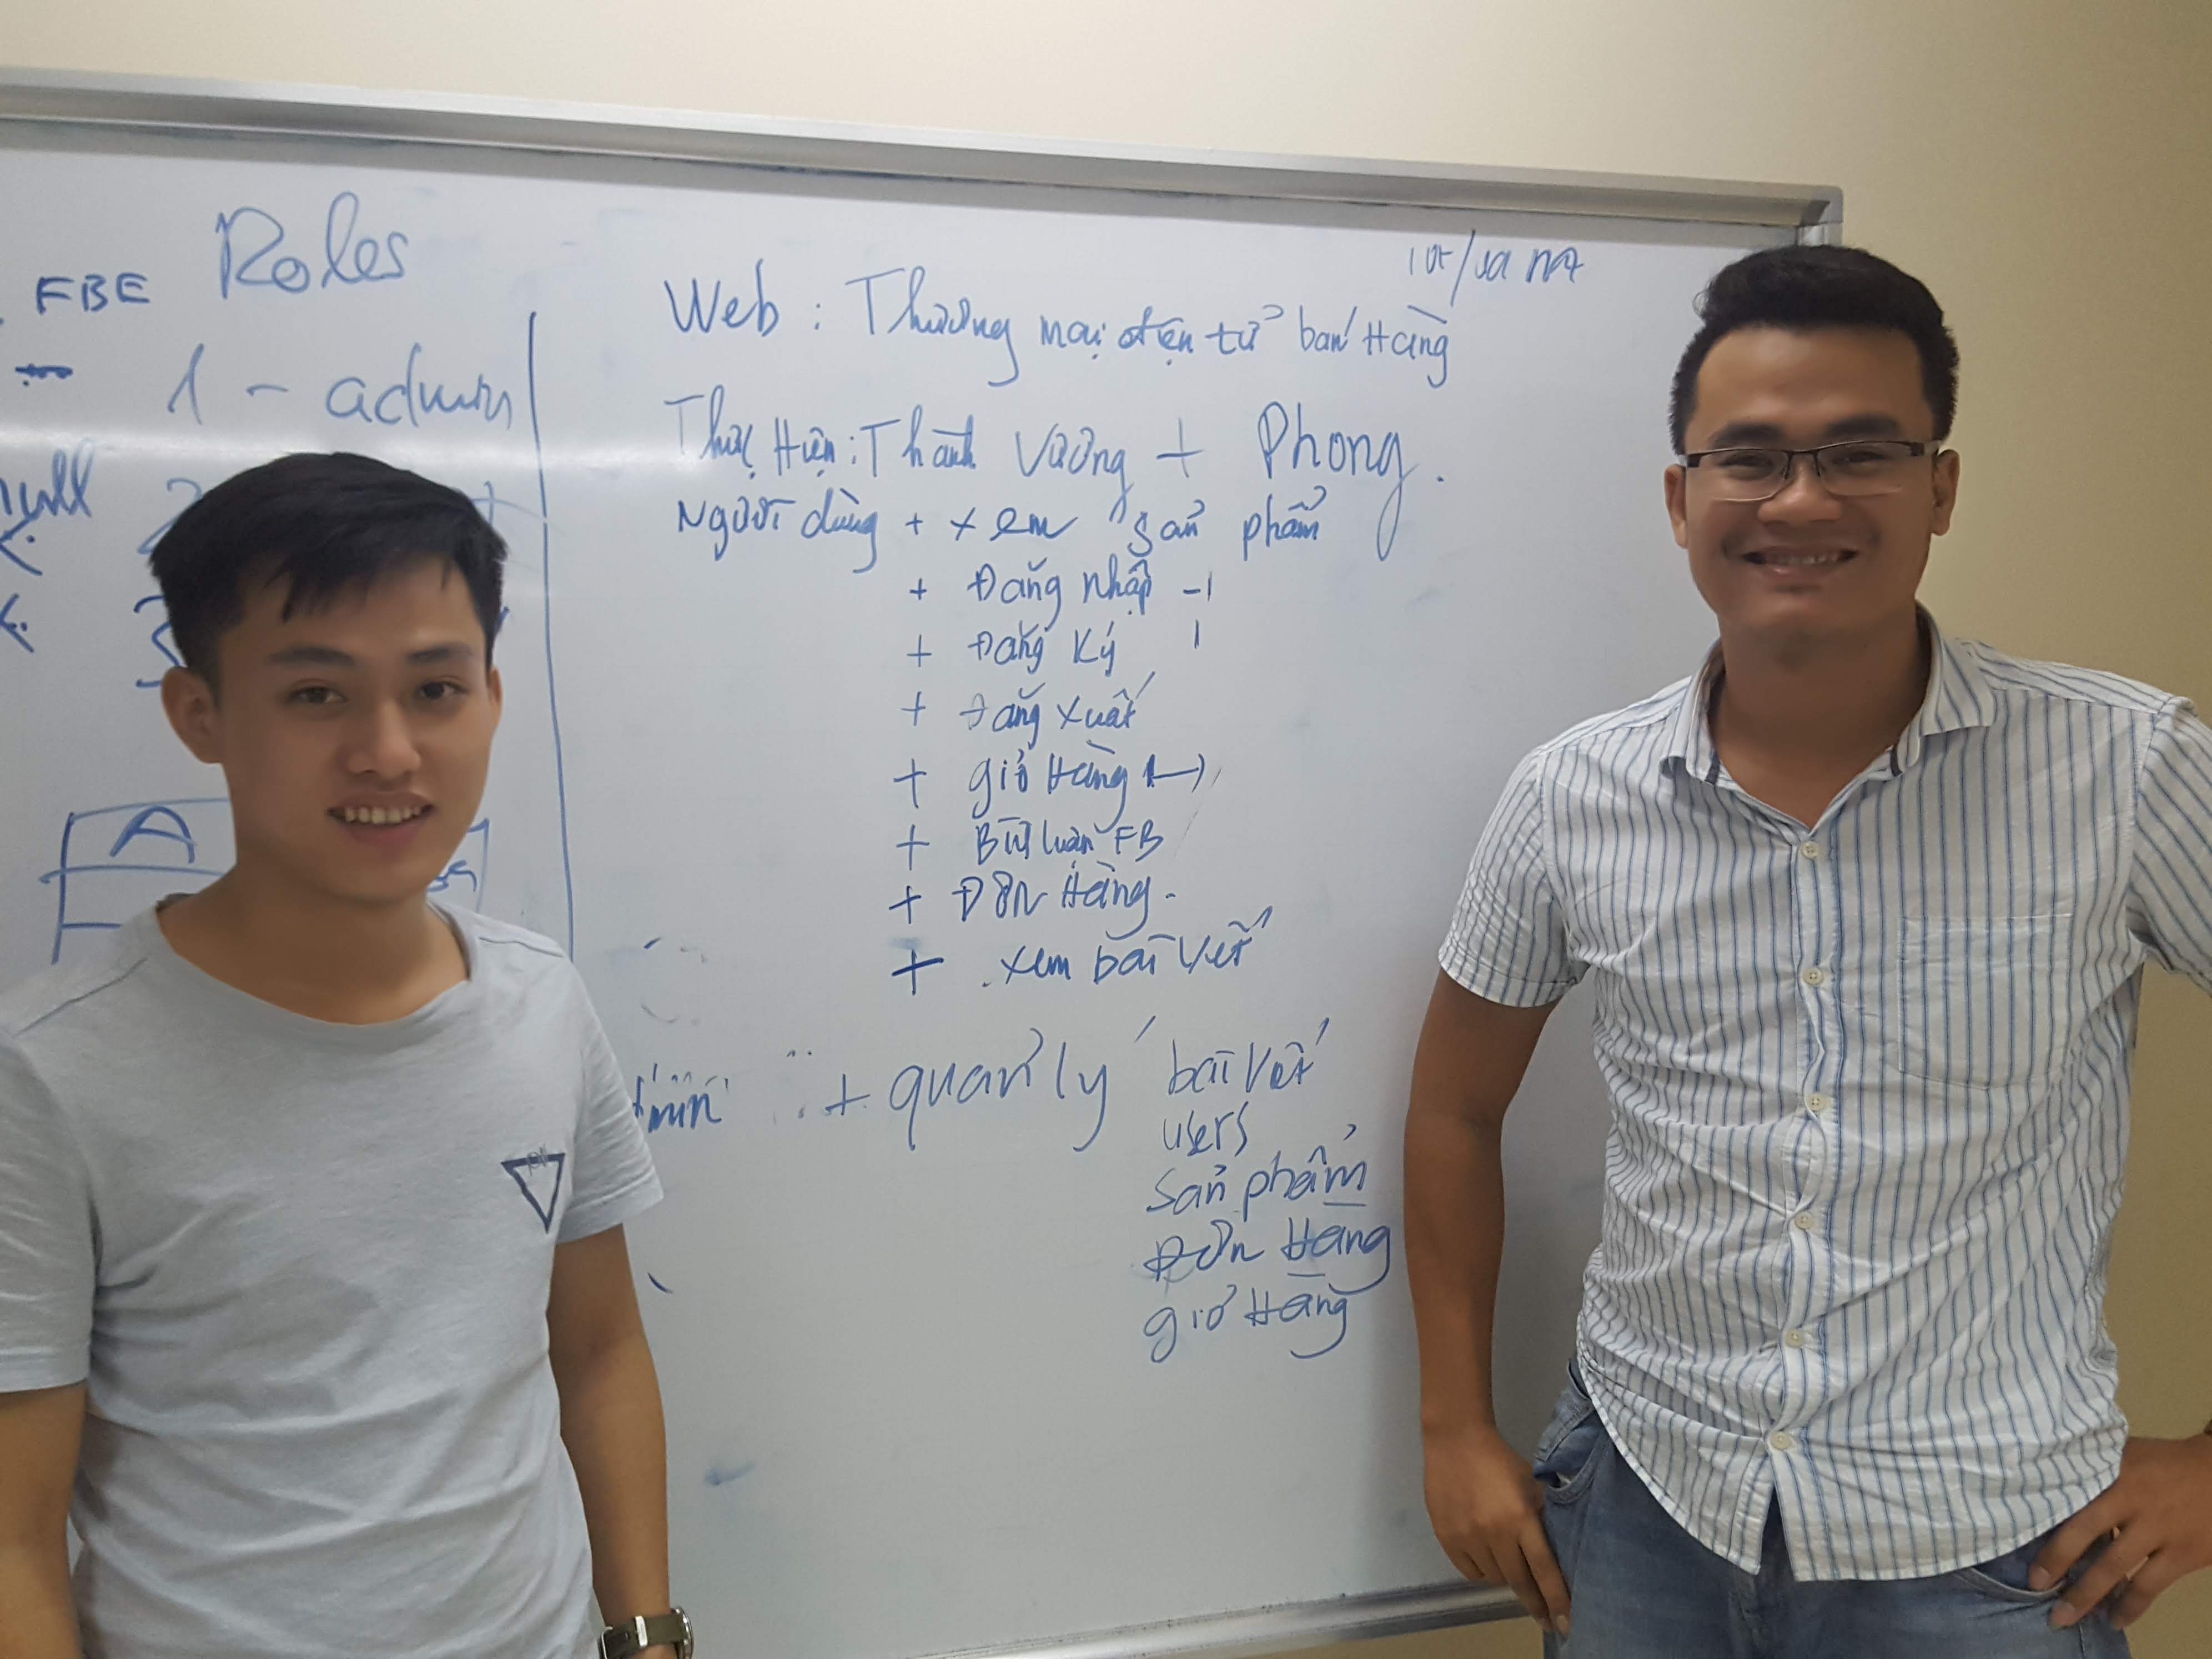 FBE Roles
1 - admin
null
A
Web : Thương mại điện tử bán Hàng
Thực Hiện : Thành Vương + Phong.
Người dùng + xem sản phẩm
+ Đăng nhập - 1
+ Đăng Ký 1
+ Đăng xuất
+ giỏ Hàng
+ Bình luận FB
+ Đơn Hàng.
+ xem bài viết
+ quản lý bài viết
users
sản phẩm
Đơn Hàng
giỏ Hàng